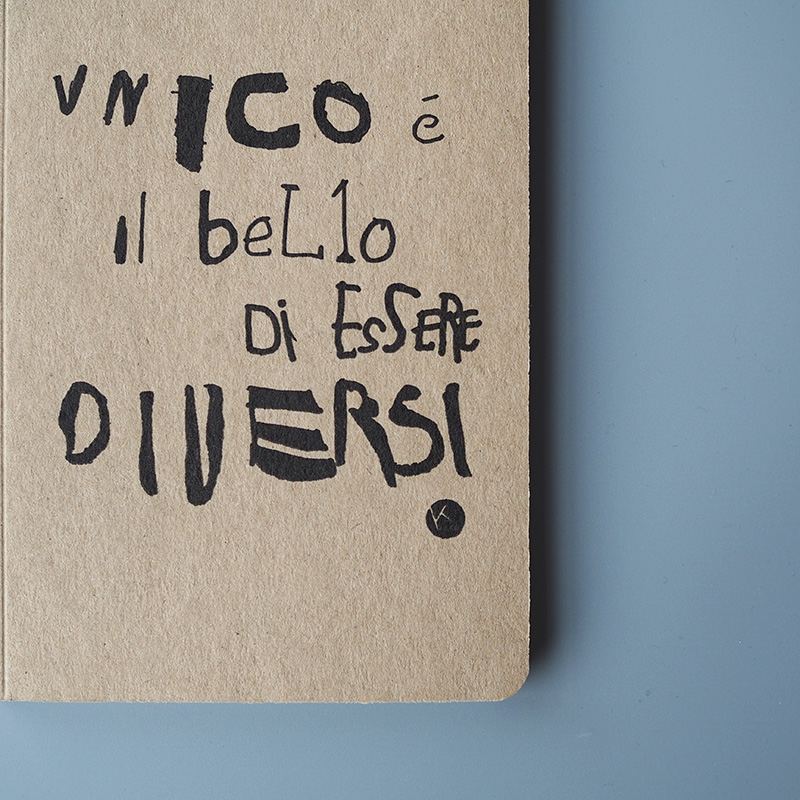 UNICO é
il beLLo
Di ESSERE
DIVERSI